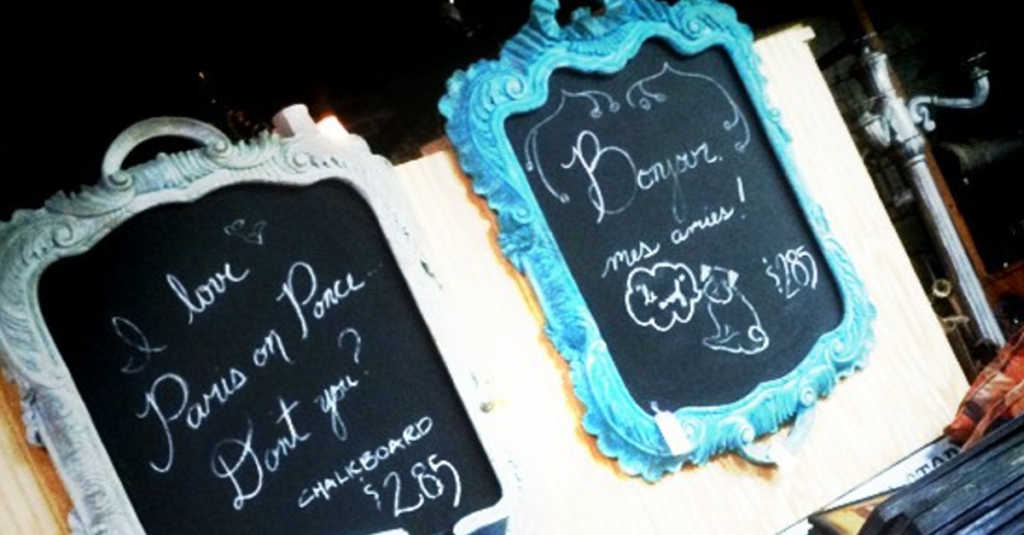 I love
Paris on Ponce...
Dont you?
CHALKBOARD
$285
Bonjour.
mes amies!
$285